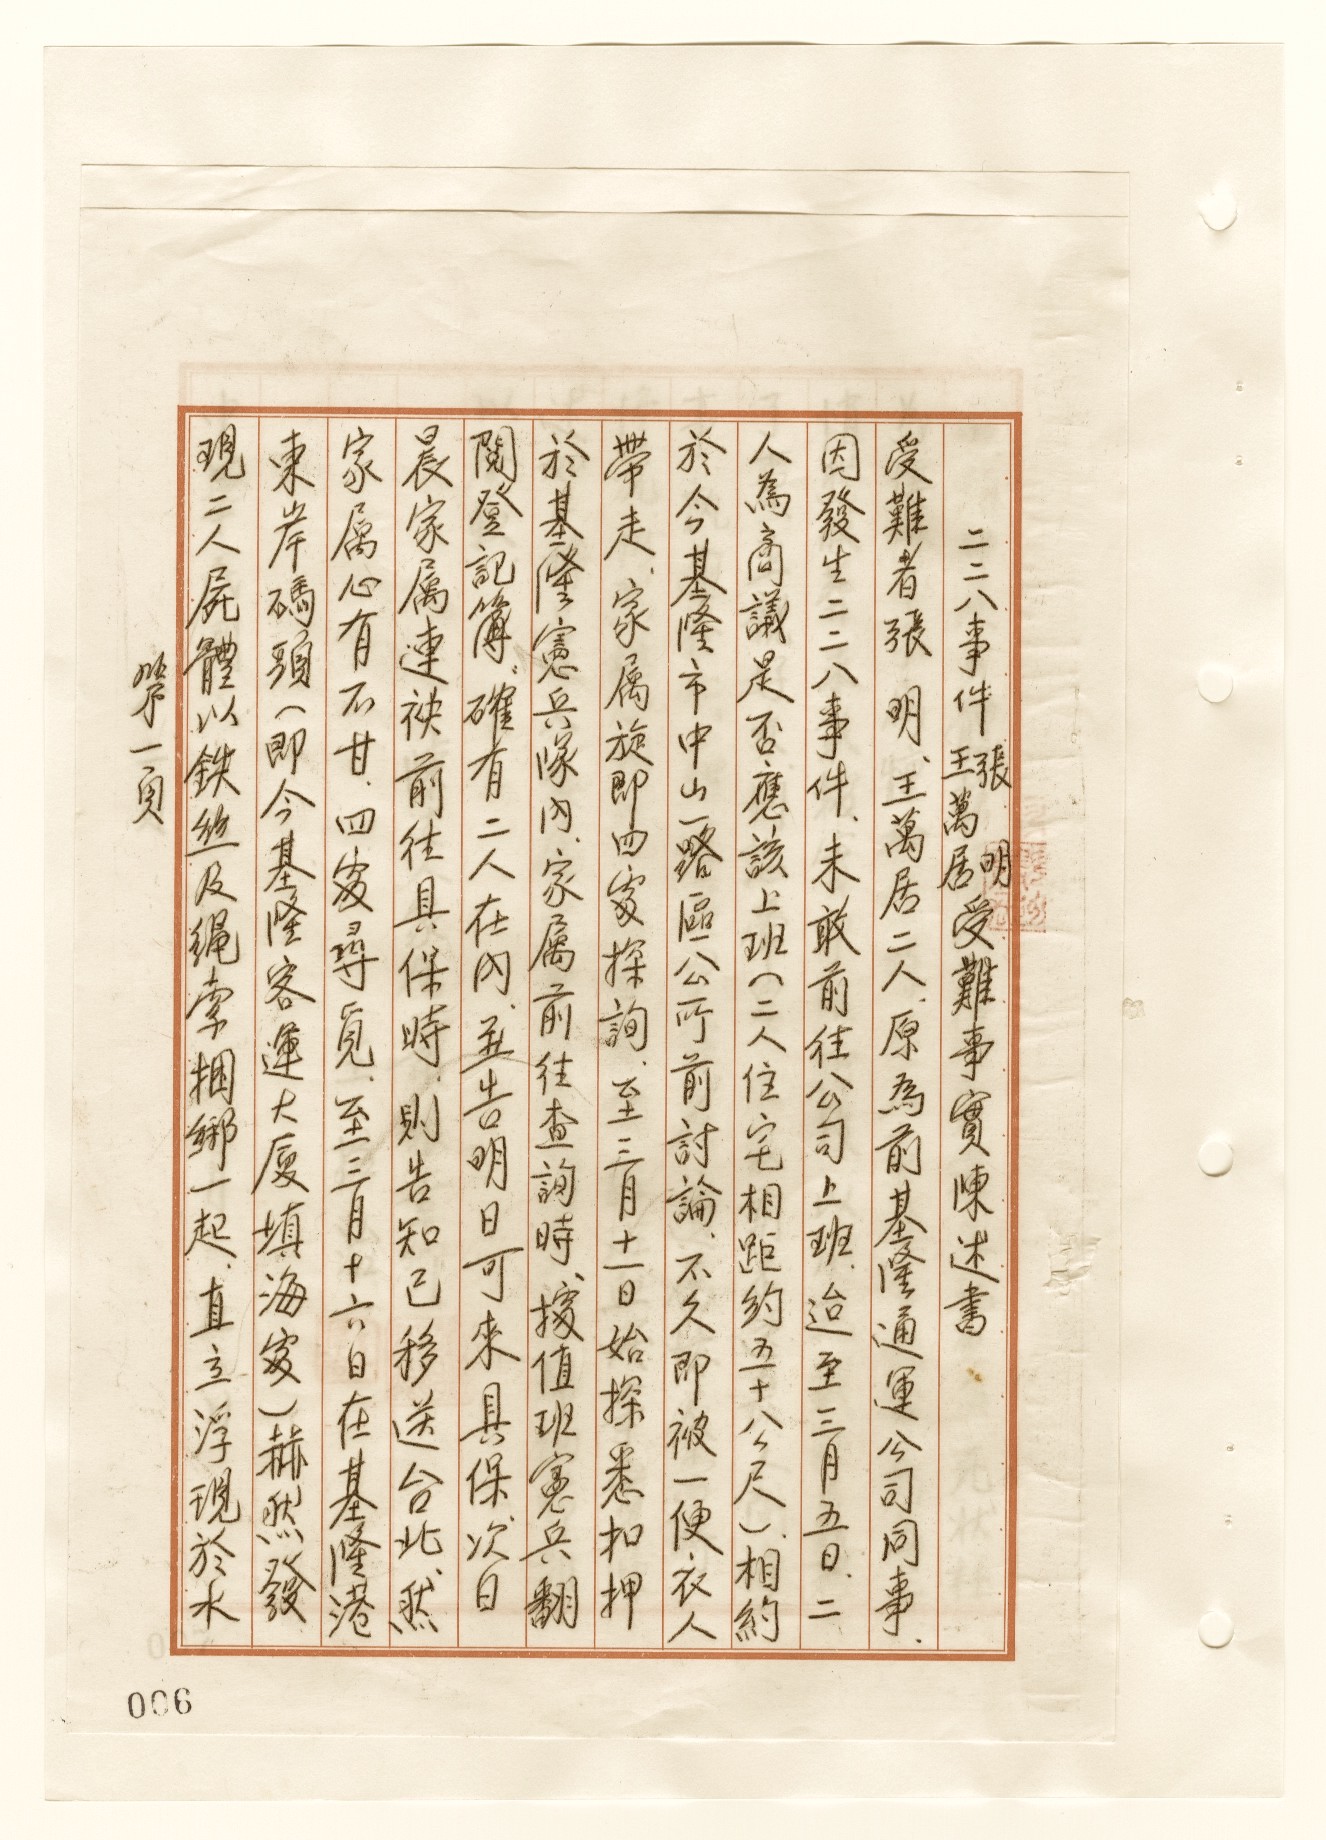 二二八事件張明王萬居受難事實陳述書
受難者張明、王萬居二人、原為前基隆通運公司同事、
因發生二二八事件、未敢前往公司上班、迨至三月五日、二
人為商議是否應該上班(二人住宅相距約五十八公尺)、相約
於今基隆市中山一路區公所前討論、不久即被一便衣人
帶走、家属旋即四處探詢、至三月十一日始探悉扣押
於基隆憲兵隊內、家属前往查詢時、據值班憲兵翻
閱登記簿、確有二人在內、並告明日可來具保、次日
晨家属連袂前往具保時、則告知已移送台北、然
家属心有不甘、四處尋覓、至三月十六日在基隆港
東岸碼頭(即今基隆客運大廈填海處)赫然發
現二人屍體以鉄丝及繩索捆綁一起、直立浮現於水
第一頁
006